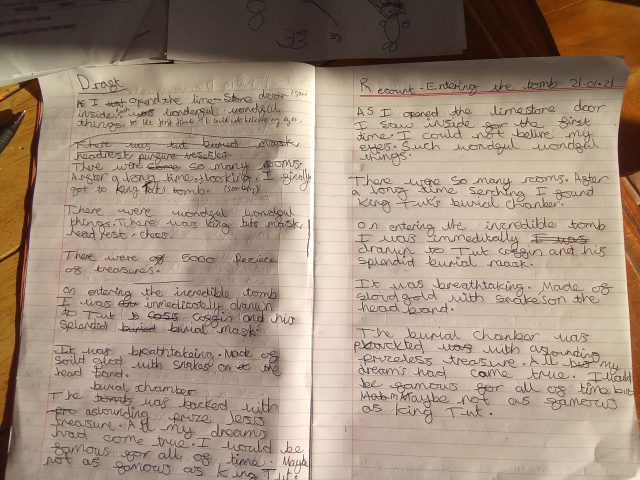 Draft
As I opend the lime Stone door I saw
inside. wonderful wondful
things. for the first time I could not believe my eyes.
There was tut buried mask
headrest
There were so many rooms.
After a long time looking. I finally
got to King Tuts tomb.
There were wondful wondful
things. There was king tuts mask
head rest
There were of 5000 
of treasures.
on entering the incredible tomb
I was immeditately drawn
to Tut coffin and his
splendid buried burial mask.
It was breathtakeing. Made of
soild glod with snakes on the
head band.
burial chamber
The tomb was backed with
astounding prize less
treasure. All my dreams
had come true. I would be
famous for all of time. Maybe
not as famous as King Tut.
Recount - Entering the tomb 21-01-21
As I opened the limestone door
I saw inside for the first
time. I could not belive my
eyes. Such wondful wondful
things.
There were so many rooms. After
a long time serching I found
King Tut's burial chamber.
on entering the incredible tomb
I was immeditally I was
drawn to Tut coffin and his
splendid burial mask.
It was breathtaking. Made of
gold with snakes on the
head band.
The burial chamber was
packked was with astounding
prizeless treasure. All my
dreams had came true. I would
be famous for all of time but
Maybe not as famous
as King Tut.